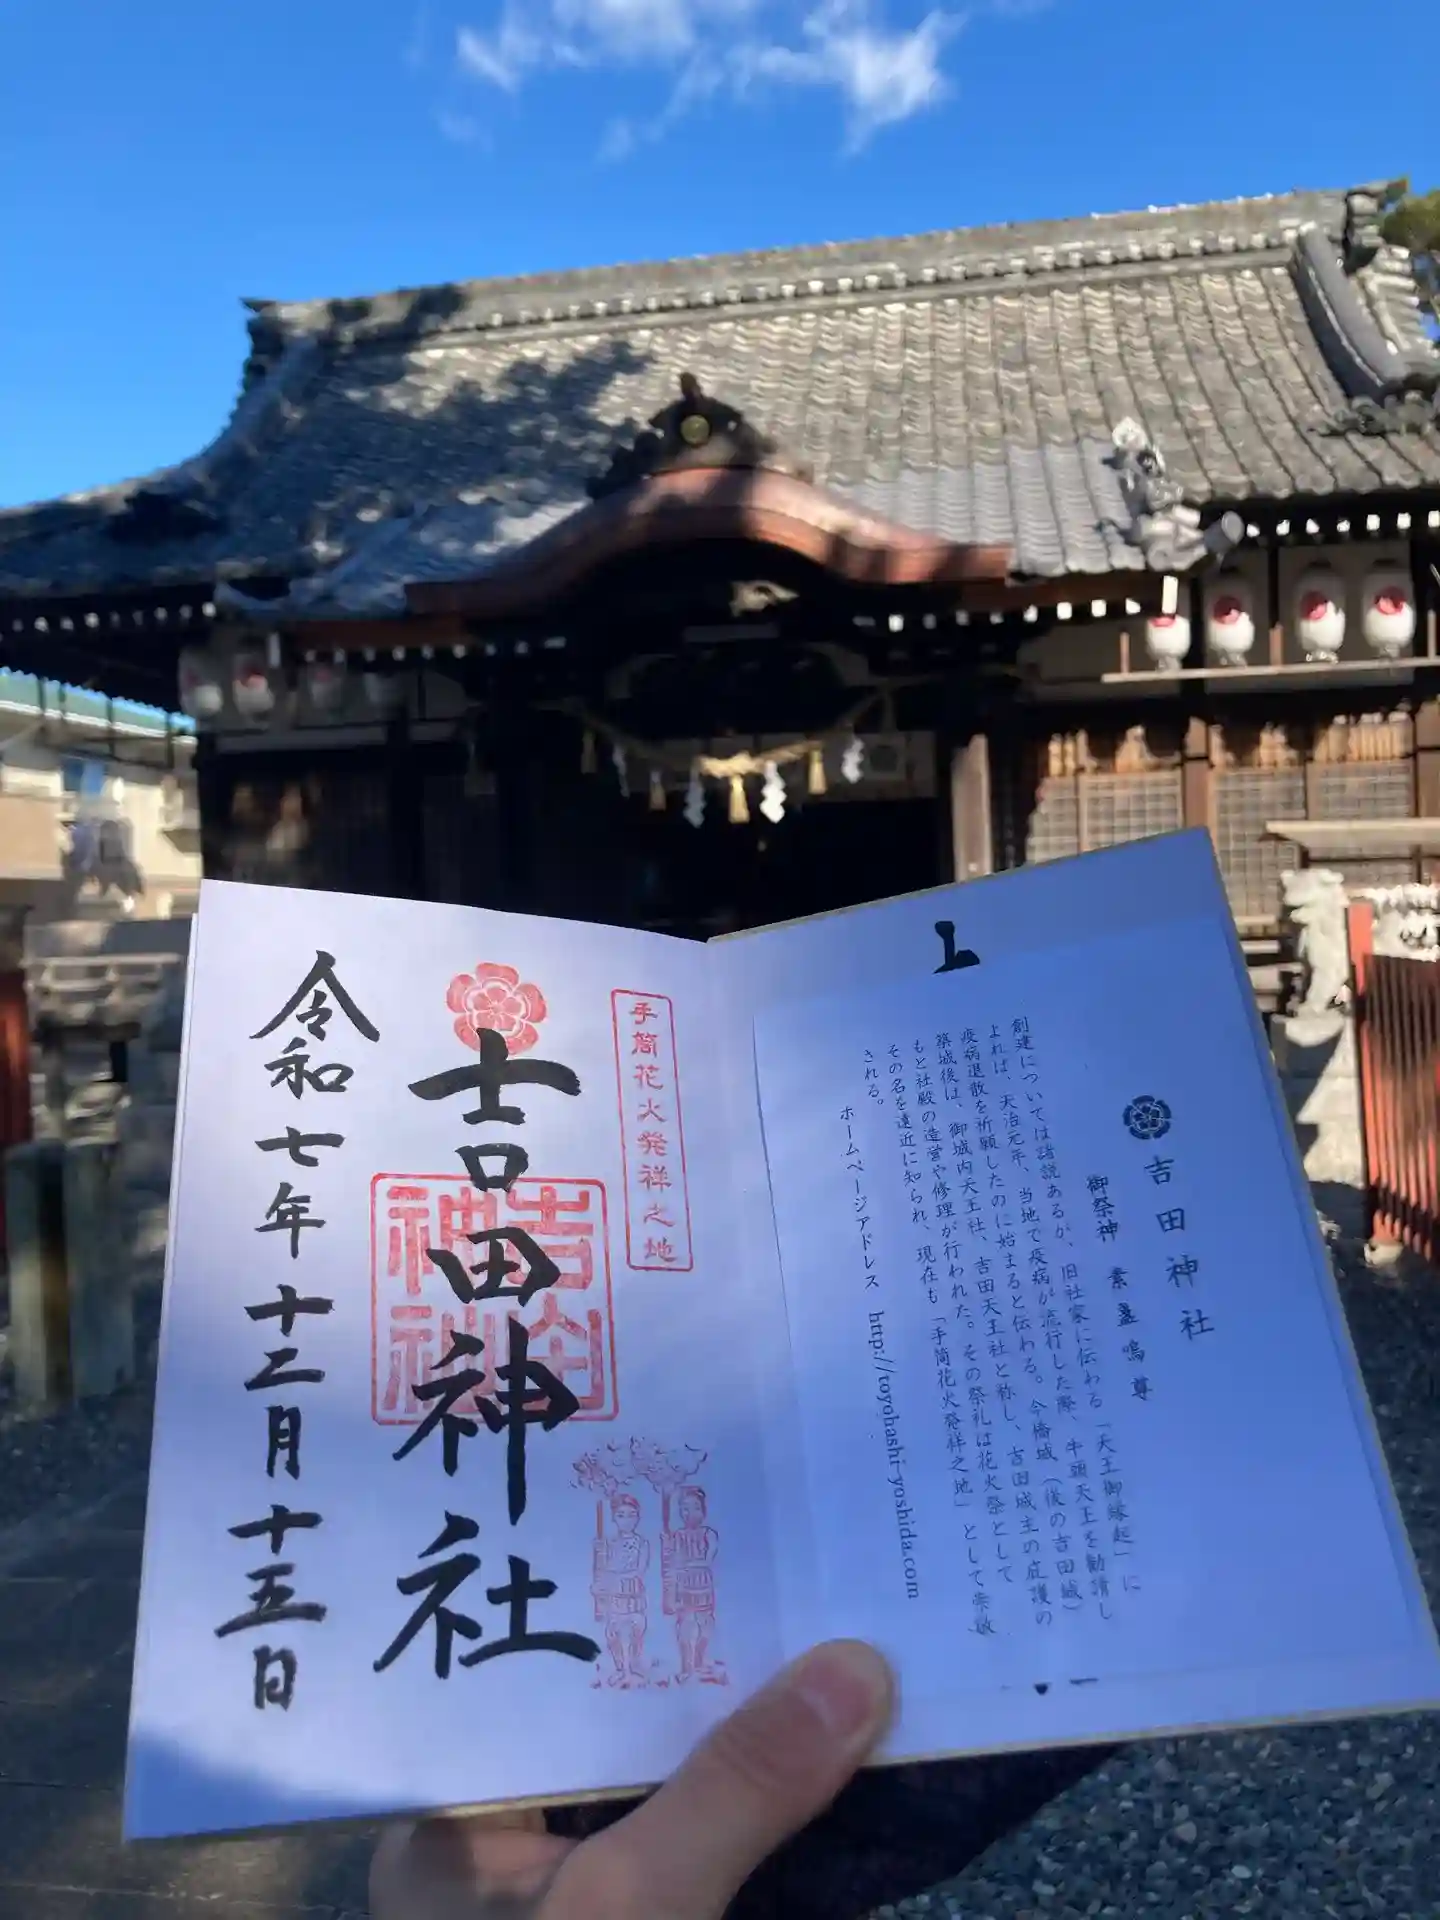 吉田神社
御祭神 素盞嗚尊
創建については諸説あるが、旧社家に伝わる「天王御縁起」に
よれば、天治元年、当地で疫病が流行した際、牛頭天王を勧請し
疫病退散を祈願したのに始まると伝わる。今橋城(後の吉田城)
築城後は、御城内天王社、吉田天王社と称し、吉田城主の庇護の
もと社殿の造営や修理が行われた。その祭礼は花火祭として
その名を遠近に知られ、現在も「手筒花火発祥之地」として崇敬
される。
ホームページアドレス http://toyohashi-yoshida.com
手筒花火発祥之地
吉田神社
吉田神社
令和七年十二月十五日